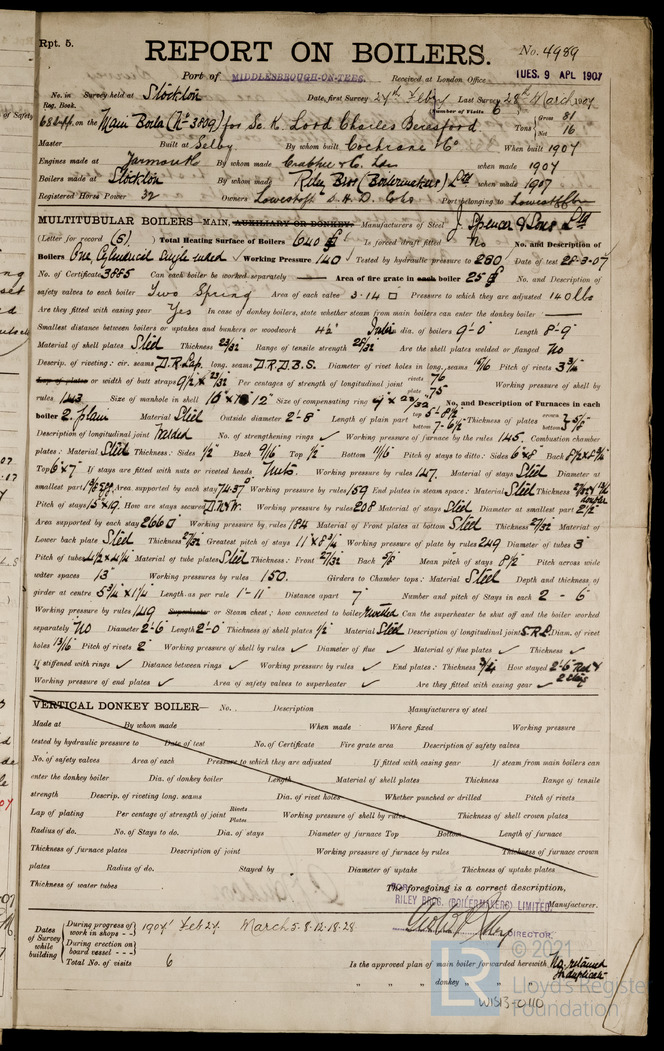 Rpt. 5.
REPORT ON BOILERS.
No. 4989
Port of MIDDLESBROUGH-ON-TEES. Received at London Office TUES. 9 APL 1907
No. in Reg. Book. Survey held at Stockton Date, first Survey 27th Feby Last Survey 28th March 1907
Number of Visits 6
on the Main Boiler (No 3809) for Sc. K. Lord Charles Beresford Tons Gross 81 Net 16
Master Built at Selby. By whom built Cochrane & Co When built 1907
Engines made at Yarmouth By whom made Crabtree & Co. Ltd when made 1907
Boilers made at Stockton By whom made Riley Bros (Boilermakers) Ltd when made 1907
Registered Horse Power 32 Owners Lowestoft S. H. D. Coln Port belonging to Lowestoft
MULTITUBULAR BOILERS - MAIN, AUXILIARY OR DONKEY. Manufacturers of Steel J. Spencer & Sons Ltd
(Letter for record (S).) Total Heating Surface of Boilers 640 Is forced draft fitted No No. and Description of
Boilers One, Cylindrical Single ended Working Pressure 140 Tested by hydraulic pressure to 280 Date of test 28-3-07
No. of Certificate 3885 Can each boiler be worked separately Area of fire grate in each boiler 25 No. and Description of
safety valves to each boiler Two Spring Area of each valve 3.14 Pressure to which they are adjusted 140 lbs
Are they fitted with easing gear Yes In case of donkey boilers, state whether steam from main boilers can enter the donkey boiler
Smallest distance between boilers or uptakes and bunkers or woodwork Inter dia. of boilers 9'-0" Length 8'-9"
Material of shell plates Steel Thickness 23/32 Range of tensile strength Are the shell plates welded or flanged No
Descrip. of riveting: cir. seams D.R.Lap. long. seams D.R.D.B.S. Diameter of rivet holes in long. seams 15/16 Pitch of rivets 3 3/4
Lap of plates or width of butt straps Per centages of strength of longitudinal joint rivets 76 plates 75 Working pressure of shell by
rules 143 Size of manhole in shell 16" x 12" Size of compensating ring No. and Description of Furnaces in each
boiler 2. plain Material Steel Outside diameter 2'-8" Length of plain part top bottom Thickness of plates crown bottom
Description of longitudinal joint Welded No. of strengthening rings Working pressure of furnace by the rules 145. Combustion chamber
plates: Material Steel Thickness: Sides 1/2 Back 9/16 Top 1/2 Bottom 11/16 Pitch of stays to ditto: Sides 6" x 8" Back
Top 6" x 7" If stays are fitted with nuts or riveted heads Nuts. Working pressure by rules 147. Material of stays Steel Diameter at
smallest part Area supported by each stay 74.37 Working pressure by rules 159 End plates in steam space: Material Steel Thickness
Pitch of stays 15" x 19. How are stays secured D.N.W. Working pressure by rules 208 Material of stays Steel Diameter at smallest part 2 1/2"
Area supported by each stay 266 Working pressure by rules 184 Material of Front plates at bottom Steel Thickness 27/32 Material of
Lower back plate Steel Thickness 27/32 Greatest pitch of stays Working pressure of plate by rules 249 Diameter of tubes 3
Pitch of tubes 4 1/2 x 4 1/4 Material of tube plates Steel Thickness: Front 27/32 Back 5/8 Mean pitch of stays 8 1/2 Pitch across wide
water spaces 13" Working pressures by rules 150. Girders to Chamber tops: Material Steel Depth and thickness of
girder at centre 5 3/4 x 1 1/4 Length as per rule 1'-11" Distance apart 7" Number and pitch of Stays in each 2 - 6
Working pressure by rules 149 Superheater or Steam chest; how connected to boiler Rivetted Can the superheater be shut off and the boiler worked
separately No Diameter 2'-6 Length 2'-0" Thickness of shell plates 1/2 Material Steel Description of longitudinal joint S.R.L. Diam. of rivet
holes 13/16 Pitch of rivets 2" Working pressure of shell by rules Diameter of flue Material of flue plates Thickness
If stiffened with rings Distance between rings Working pressure by rules End plates: Thickness How stayed
Working pressure of end plates Area of safety valves to superheater Are they fitted with easing gear
VERTICAL DONKEY BOILER— No. Description Manufacturers of steel
Made at By whom made When made Where fixed Working pressure
tested by hydraulic pressure to Date of test No. of Certificate Fire grate area Description of safety valves
No. of safety valves Area of each Pressure to which they are adjusted If fitted with easing gear If steam from main boilers can
enter the donkey boiler Dia. of donkey boiler Length Material of shell plates Thickness Range of tensile
strength Descrip. of riveting long. seams Dia. of rivet holes Whether punched or drilled Pitch of rivets
Lap of plating Per centage of strength of joint Rivets Plates Working pressure of shell by rules Thickness of shell crown plates
Radius of do. No. of Stays to do. Dia. of stays Diameter of furnace Top Bottom Length of furnace
Thickness of furnace plates Description of joint Working pressure of furnace by rules Thickness of furnace crown
plates Radius of do. Stayed by Diameter of uptake Thickness of uptake plates
Thickness of water tubes
The foregoing is a correct description,
FOR RILEY BROS. (BOILERMAKERS) LIMITED. Manufacturer.
DIRECTOR.
Dates of Survey while building
During progress of work in shops - - 1907 Feb 27 March 5. 8. 12. 18. 28
During erection on board vessel - -
Total No. of visits 6
Is the approved plan of main boiler forwarded herewith No. retained in duplicate
" " " donkey " " "
W1513-0110
© 2021
LR
Lloyd's Register
Foundation